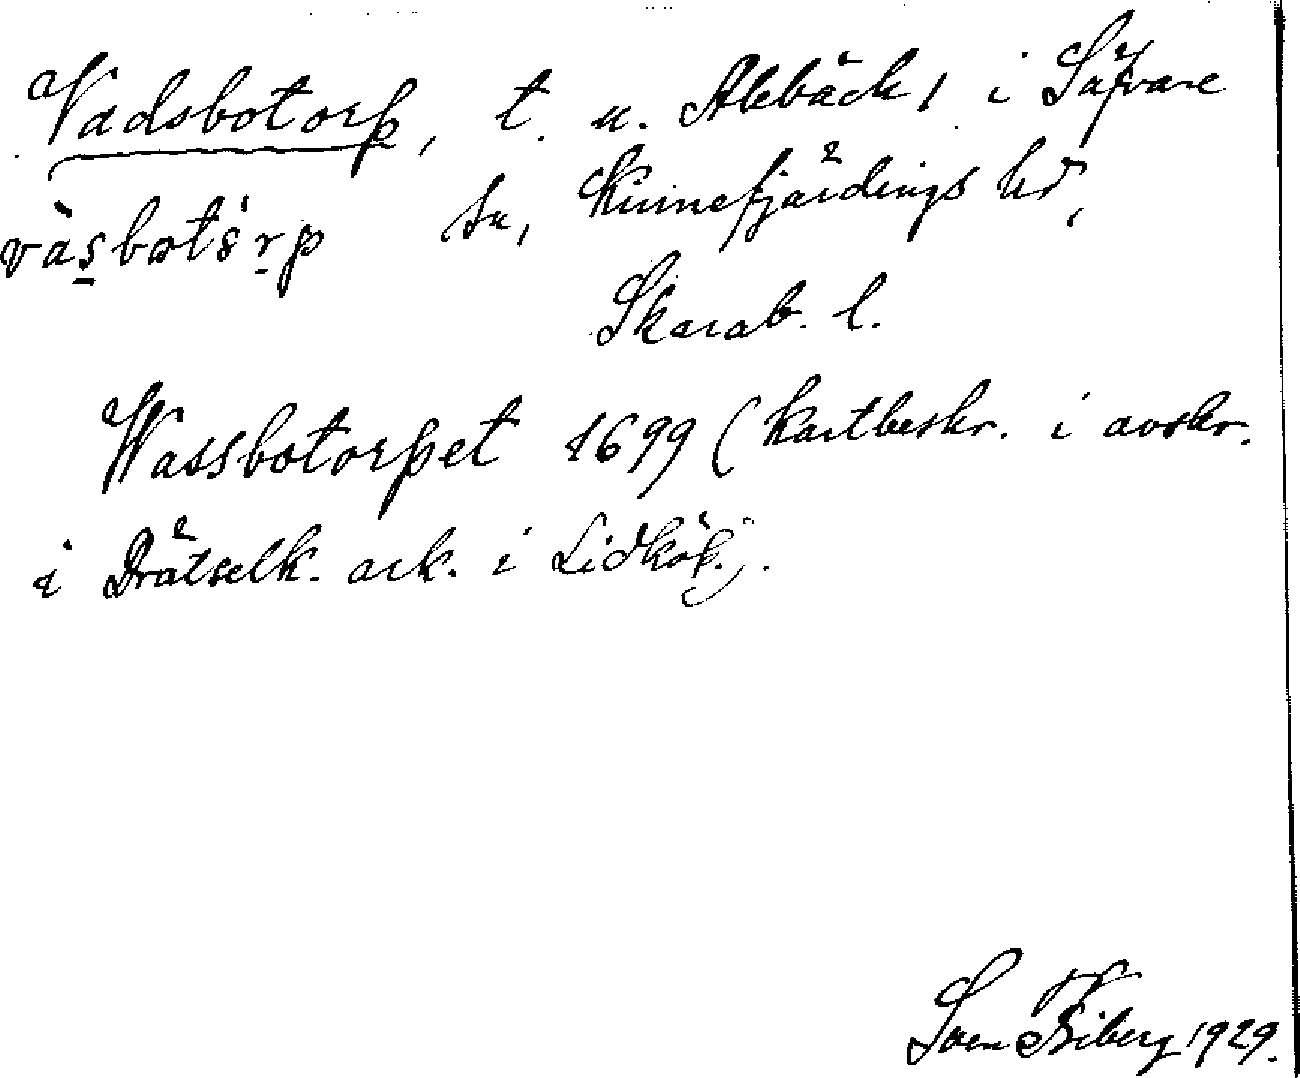 Vadsbotorp, t. u. Alebäck, i Säfvare
vàsbotórp sn, Kinnefjärdings hd,
Skarab. l.
Wassbotorpet 1699 (Kartbeskr. i avskr.
i Drätselk. ark. i Lidköp.).
Sven Friberg 1929.